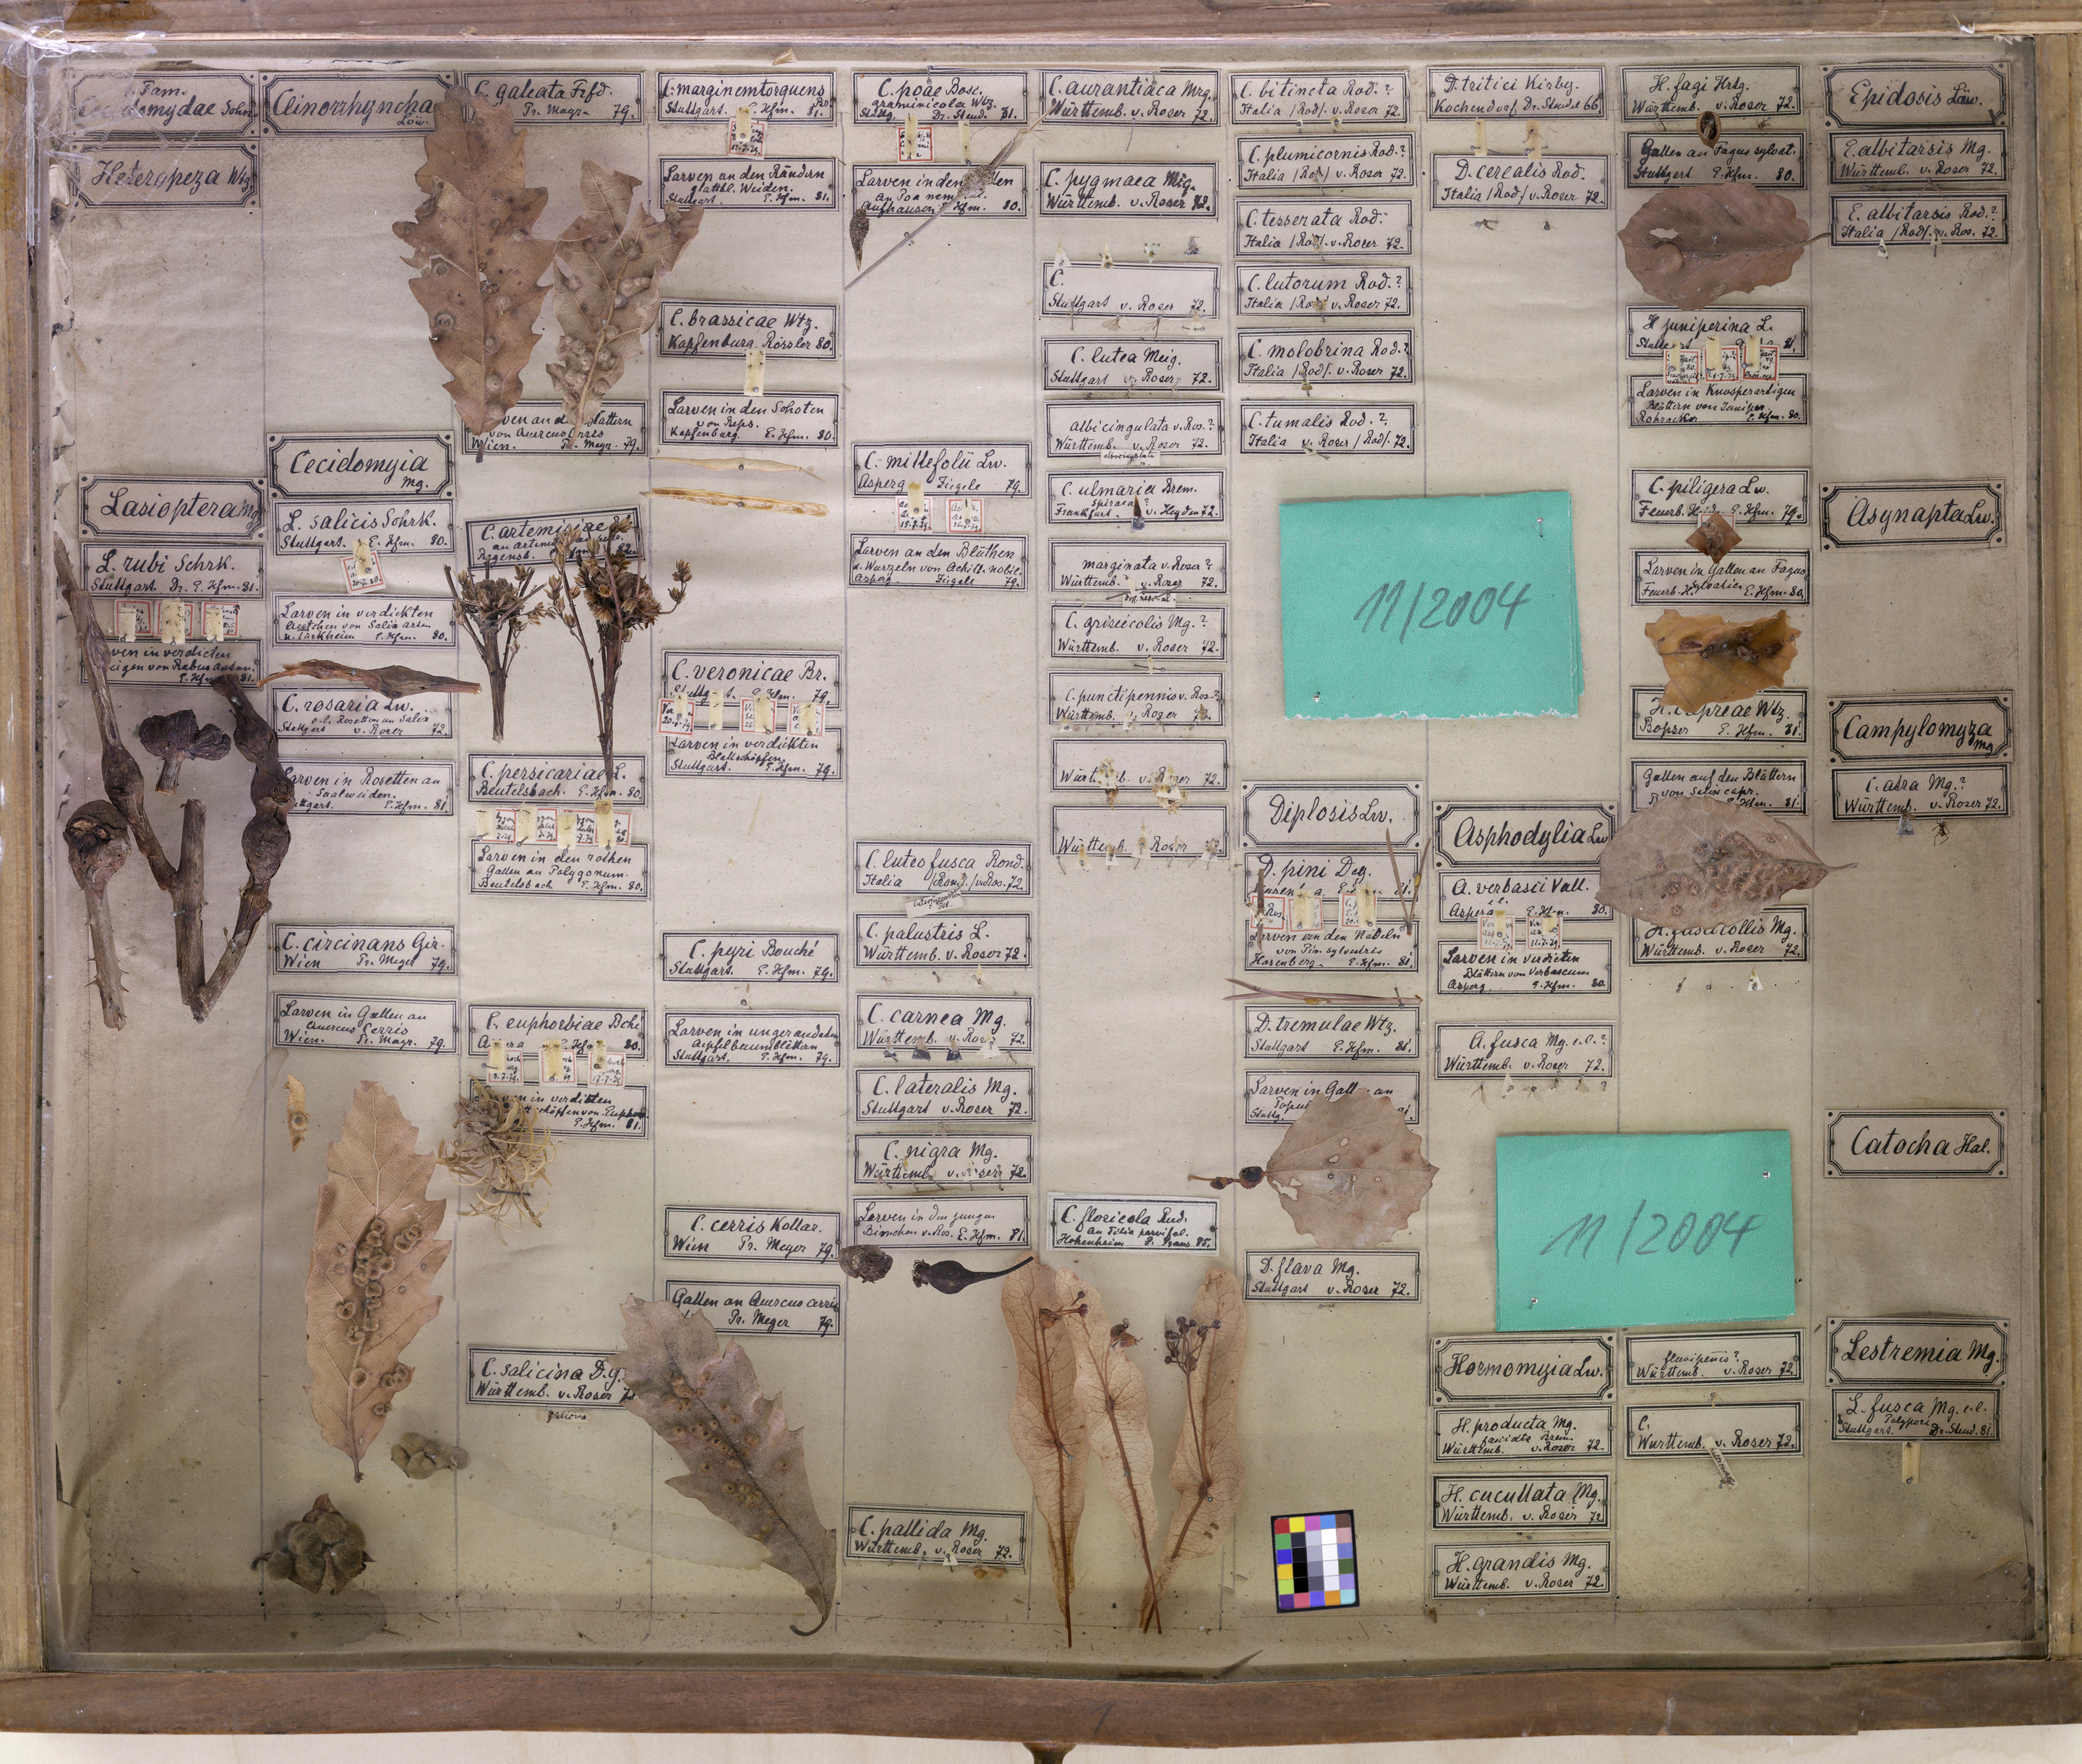 Fam.
Cecidomydae Schin.
Heteropeza Wtz
Lasioptera Mg
L. rubi Schrk.
Stuttgart. Dr. E. Hfm. 81.
ven in verdicten
eigen von Rubus Arten.
E. Hfm. 81.
Clinorrhyncha
Löw.
Cecidomyia
Mg.
L. salicis Schrk.
Stuttgart. E. Hfm. 80.
20.7.80.
Larven in verdickten
Aestchen von Salix arten
E. Hfm. 80.
C. rosaria Lw.
Rosetten an Salix
Stuttgart v. Roser 72.
Larven in Rosetten an
Saalweiden.
E. Hfm. 81.
C. circinans Gir.
Wien Pr. Meyer 79.
Larven in Gallen an
Quercus Cerris
Wien. Pr. Mayr. 79.
C. galeata Frfd.
Pr. Mayr. 79.
ven an d. Blättern
von Quercus Cerris
Wien. Pr. Mayr. 79.
C. artemisiae
an Artem
Regensb.
C. persicariae L.
Beutelsbach. E. Hfm. 80.
Larven in den rothen
Gallen an Polygonum.
Beutelsbach E. Hfm. 80.
C. euphorbiae Bché
E. Hfm. 80.
ven in verdikten
schöpfen von Euphor.
E. Hfm. 81.
C. salicina D.g.
Württemb. v. Roser 7
salicina
C. marginemtorquens
Stuttgart. E. Hfm. 81.
12.7.79.
Larven an den Rändern
glattbl. Weiden.
Stuttgart. E. Hfm. 81.
C. brassicae Wtz.
Kapfenburg. Rössler 80.
Larven in den Schoten
von Reps.
Kapfenburg. E. Hfm. 80.
C. veronicae Br.
Stuttgart. E. Hfm. 79.
Larven in verdikten
Blattschöpfen.
Stuttgart. E. Hfm. 79.
C. pyri Bouché
Stuttgart. E. Hfm. 79.
Larven in ungerandeten
Aepfelbaumblättern
Stuttgart. E. Hfm. 79.
C. cerris Kollar.
Wien Pr. Meyer 79.
Gallen an Quercus cerris
Pr. Meyer 79.
C. poae Bosc.
graminicola Wtz.
Stuttg. Dr. Steud. 81.
Larven in den
an Poa nem
Aufhausen Hfm. 80.
C. millefolii Lw.
Asperg Ziegele 79.
Larven an den Blüthen
u. Wurzeln von Achill. nobil.
Asperg. Ziegele 79.
C. luteofusca Rond.
Italia /Rond./ v. Ros. 72.
C. palustris L.
Württemb. v. Roser 72.
C. carnea Mg.
Württemb. v. Roser 72.
C. lateralis Mg.
Stuttgart v. Roser 72.
C. nigra Mg.
Württemb. v. Roser 72.
Larven in den jungen
Birnchen v. Ros. E. Hfm. 81.
C. pallida Mg.
Württemb. v. Roser 72.
C. aurantiaca Mrg.
Württemb. v. Roser 72.
C. pygmaea Mig.
Württemb. v. Roser 72.
C.
Stuttgart v. Roser 72.
C. lutea Meig.
Stuttgart v. Roser 72.
albicingulata v. Ros.?
Württemb. v. Roser 72.
C. ulmaria Brem.
spiraea?
Frankfurt. v. Heyden 72.
marginata v. Roser?
Württemb. v. Roser 72.
C. griseicolis Mg.?
Württemb. v. Roser 72.
C. punctipennis v. Ros.?
Württemb. v. Roser 72.
Württemb. v. Roser 72.
Württemb. v. Roser 72.
C. floricola Rud.
an Tilia parvifol.
Hohenheim 85.
C. bitincta Rod.?
Italia /Rod/. v. Roser 72.
C. plumicornis Rod.?
Italia /Rod/ v. Roser 72.
C. tesserata Rod.
Italia /Rod/. v. Roser 72.
C. lutorum Rod.?
Italia /Rod/ v. Roser 72.
C. molobrina Rod.?
Italia /Rod/. v. Roser 72.
C. tumalis Rod.?
Italia v. Roser /Rod/. 72.
11/2004
Diplosis Lw.
D. pini Deg.
Larven an den Nadeln
von Pin. sylvestris
Hasenberg. E. Hfm. 81.
D. tremulae Wtz.
Stuttgart E. Hfm. 81.
Larven in Gall an
Popul
Stuttg.
D. flava Mg.
Stuttgart v. Roser 72.
D. tritici Kirby.
Kochendorf. Dr. Steudel 66.
D. cerealis Rod.
Italia /Rod/ v. Roser 72.
Asphodylia Lw
A. verbasci Vall.
Asperg E. Hfm. 80.
Larven in verdickten
Blättern von Verbascum
Asperg. E. Hfm. 80.
A. fusca Mg. c.l.?
Württemb. v. Roser 72.
11/2004
Hormomyia Lw.
H. producta Mg.
fasciata Brem.
Württemb. v. Roser 72.
H. cucullata Mg.
Württemb. v. Roser 72
H. grandis Mg.
Württemb. v. Roser 72.
H. fagi Hrtg.
Württemb. v. Roser 72.
Gallen an Fagus sylvat.
Stuttgart E. Hfm. 80.
H juniperina L.
Larven in Knospenartigen
Blättern von Juniper
Rohracker E. Hfm. 80.
C. piligera Lw.
Feuerb. Heide. E. Hfm. 79.
Larven in Gallen an Fagus
sylvatica
Feuerb. H. E. Hfm. 80.
H. capreae Wtz.
Bopser E. Hfm. 81.
Gallen auf den Blättern
von Salix capr.
E. Hfm. 81.
H. fascicollis Mg.
Württemb. v. Roser 72.
flavipennis?
Württemb. v. Roser 72
C.
Württemb. v. Roser 72.
Epidosis Löw.
E. albitarsis Mg.
Württemb. v. Roser 72.
E. albitarsis Rod.?
Italia /Rod/. v. Ros. 72.
Asynapta Lw.
Campylomyza
Mg
C. atra Mg.?
Württemb. v. Roser 72.
Catocha Hal.
Lestremia Mg.
L. fusca Mg. c.l.
Polypori
Stuttgart. Dr. Steud. 81.